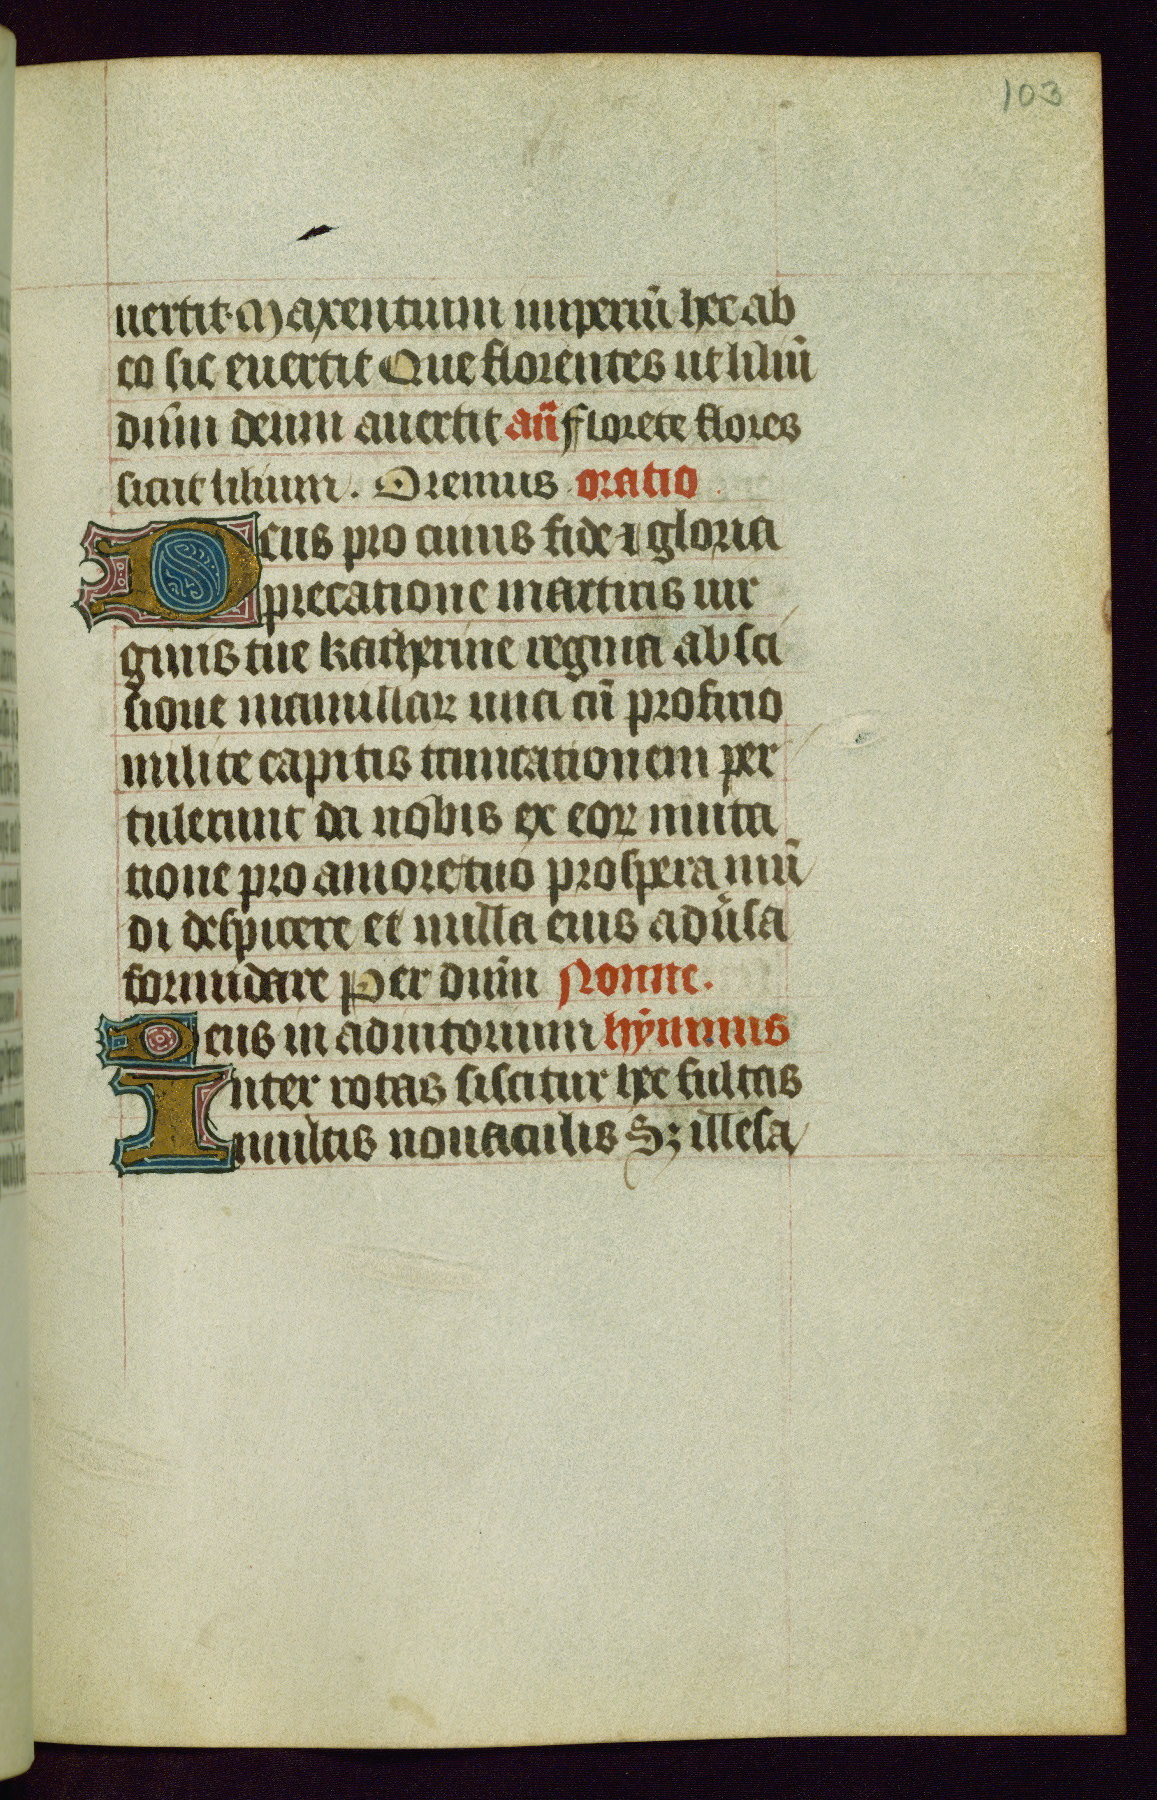 103
uertit. Maxentium imperiū hec ab
eo sic euertit Que florentes ut liliū
dn̄m deum auertit an̄ fflorete flores
sicut lilium. Oremus oratio
Deus pro cuius fide ⁊ gloria
precatione martiris uir
ginis tue katherine regina absci
sione mamillaꝝ una cū profirio
milite capitis truncationem per
tulerunt da nobis ex eoꝝ imita
tione pro amore tuo prospera mū
di despicere et nulla eius adūsa
formidare Per dn̄m Nonne.
Deus in adiutorium hẏmnus
Inter rotas siscitur hec fultas
multis nouaculis Sꝫ illesa